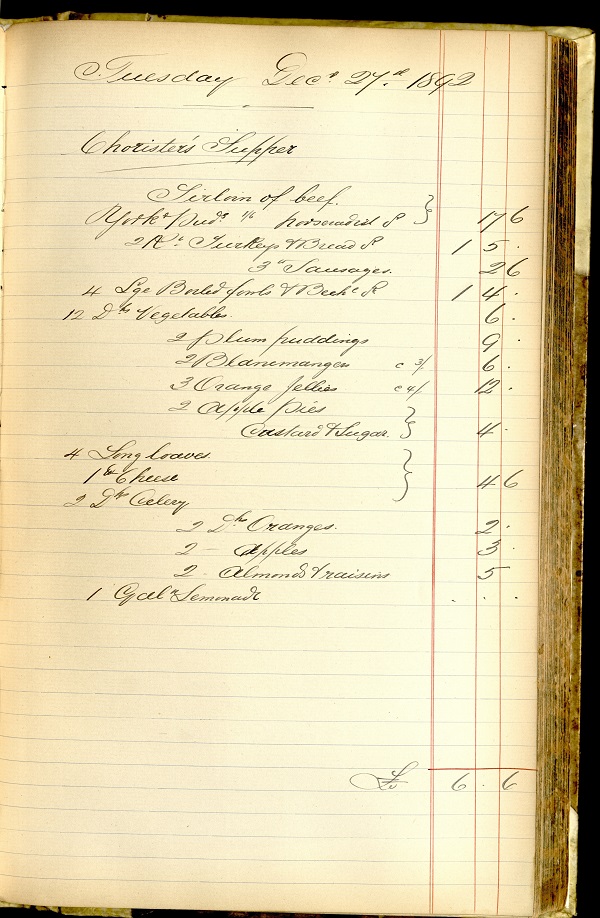 Tuesday Decr 27th 1892
Chorister's Supper
Sirloin of beef.
York & Puds 1/6 horseradish S } 17 6
2 Rt Turkeys & Bread S 1 5 .
3 lb Sausages. 2 6
4 Lge Boiled fowls & Bechl S 1 4 .
12 Dhs Vegetables. 6 .
2 plum puddings 9 .
2 Blancmanges c 3/. 6 .
3 Orange Jellies c 4/. 12 .
2 Apple Pies
Custard & Sugar. } 4 .
4 Long loaves
1 Cheese } 4 6
2 Dhs Celery
2 Dhs Oranges. 2 .
2 — Apples 3 .
2 Almonds & raisins 5
1 Galn Lemonade . . .
£ 6 . 6